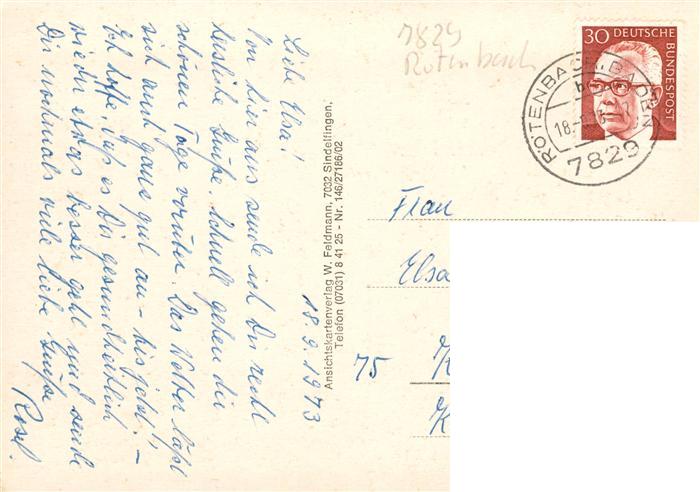 18.9.1973
Liebe Elsa!
Von hier aus sende ich Dir recht
herzliche Grüße. Schnell gehen die
schönen Tage vorüber. Das Wetter läßt
sich auch ganz gut an - bis jetzt! -
Ich hoffe, daß es Dir gesundheitlich
wieder etwas besser geht und sende
Dir nochmals viele liebe Grüße
Rosel.
Ansichtskartenverlag W. Feldmann, 7032 Sindelfingen,
Telefon (07031) 8 41 25 - Nr. 146/27186/02
7829
Rötenbach
30 DEUTSCHE
BUNDESPOST
RÖTENBACH, BADEN
b
18.-9.
7829
Frau
Elsa
75